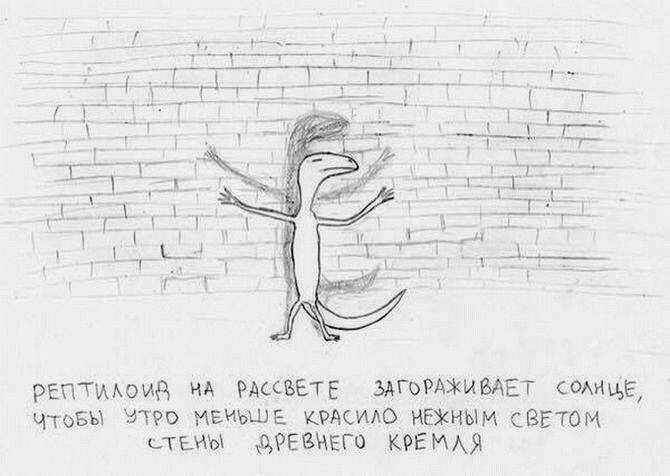 РЕПТИЛОИД НА РАССВЕТЕ ЗАГОРАЖИВАЕТ СОЛНЦЕ,
ЧТОБЫ УТРО МЕНЬШЕ КРАСИЛО НЕЖНЫМ СВЕТОМ
СТЕНЫ ДРЕВНЕГО КРЕМЛЯ